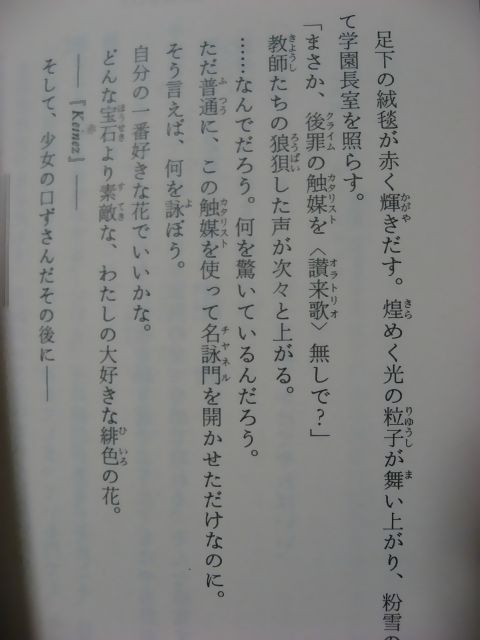 足下の絨毯が赤く輝きだす。煌めく光の粒子が舞い上がり、粉雪の
て学園長室を照らす。
「まさか、後罪の触媒を〈讃来歌〉無しで？」
教師たちの狼狽した声が次々と上がる。
……なんでだろう。何を驚いているんだろう。
ただ普通に、この触媒を使って名詠門を開かせただけなのに。
そう言えば、何を詠ぼう。
自分の一番好きな花でいいかな。
どんな宝石より素敵な、わたしの大好きな緋色の花。
――『Keinez』――
そして、少女の口ずさんだその後に――